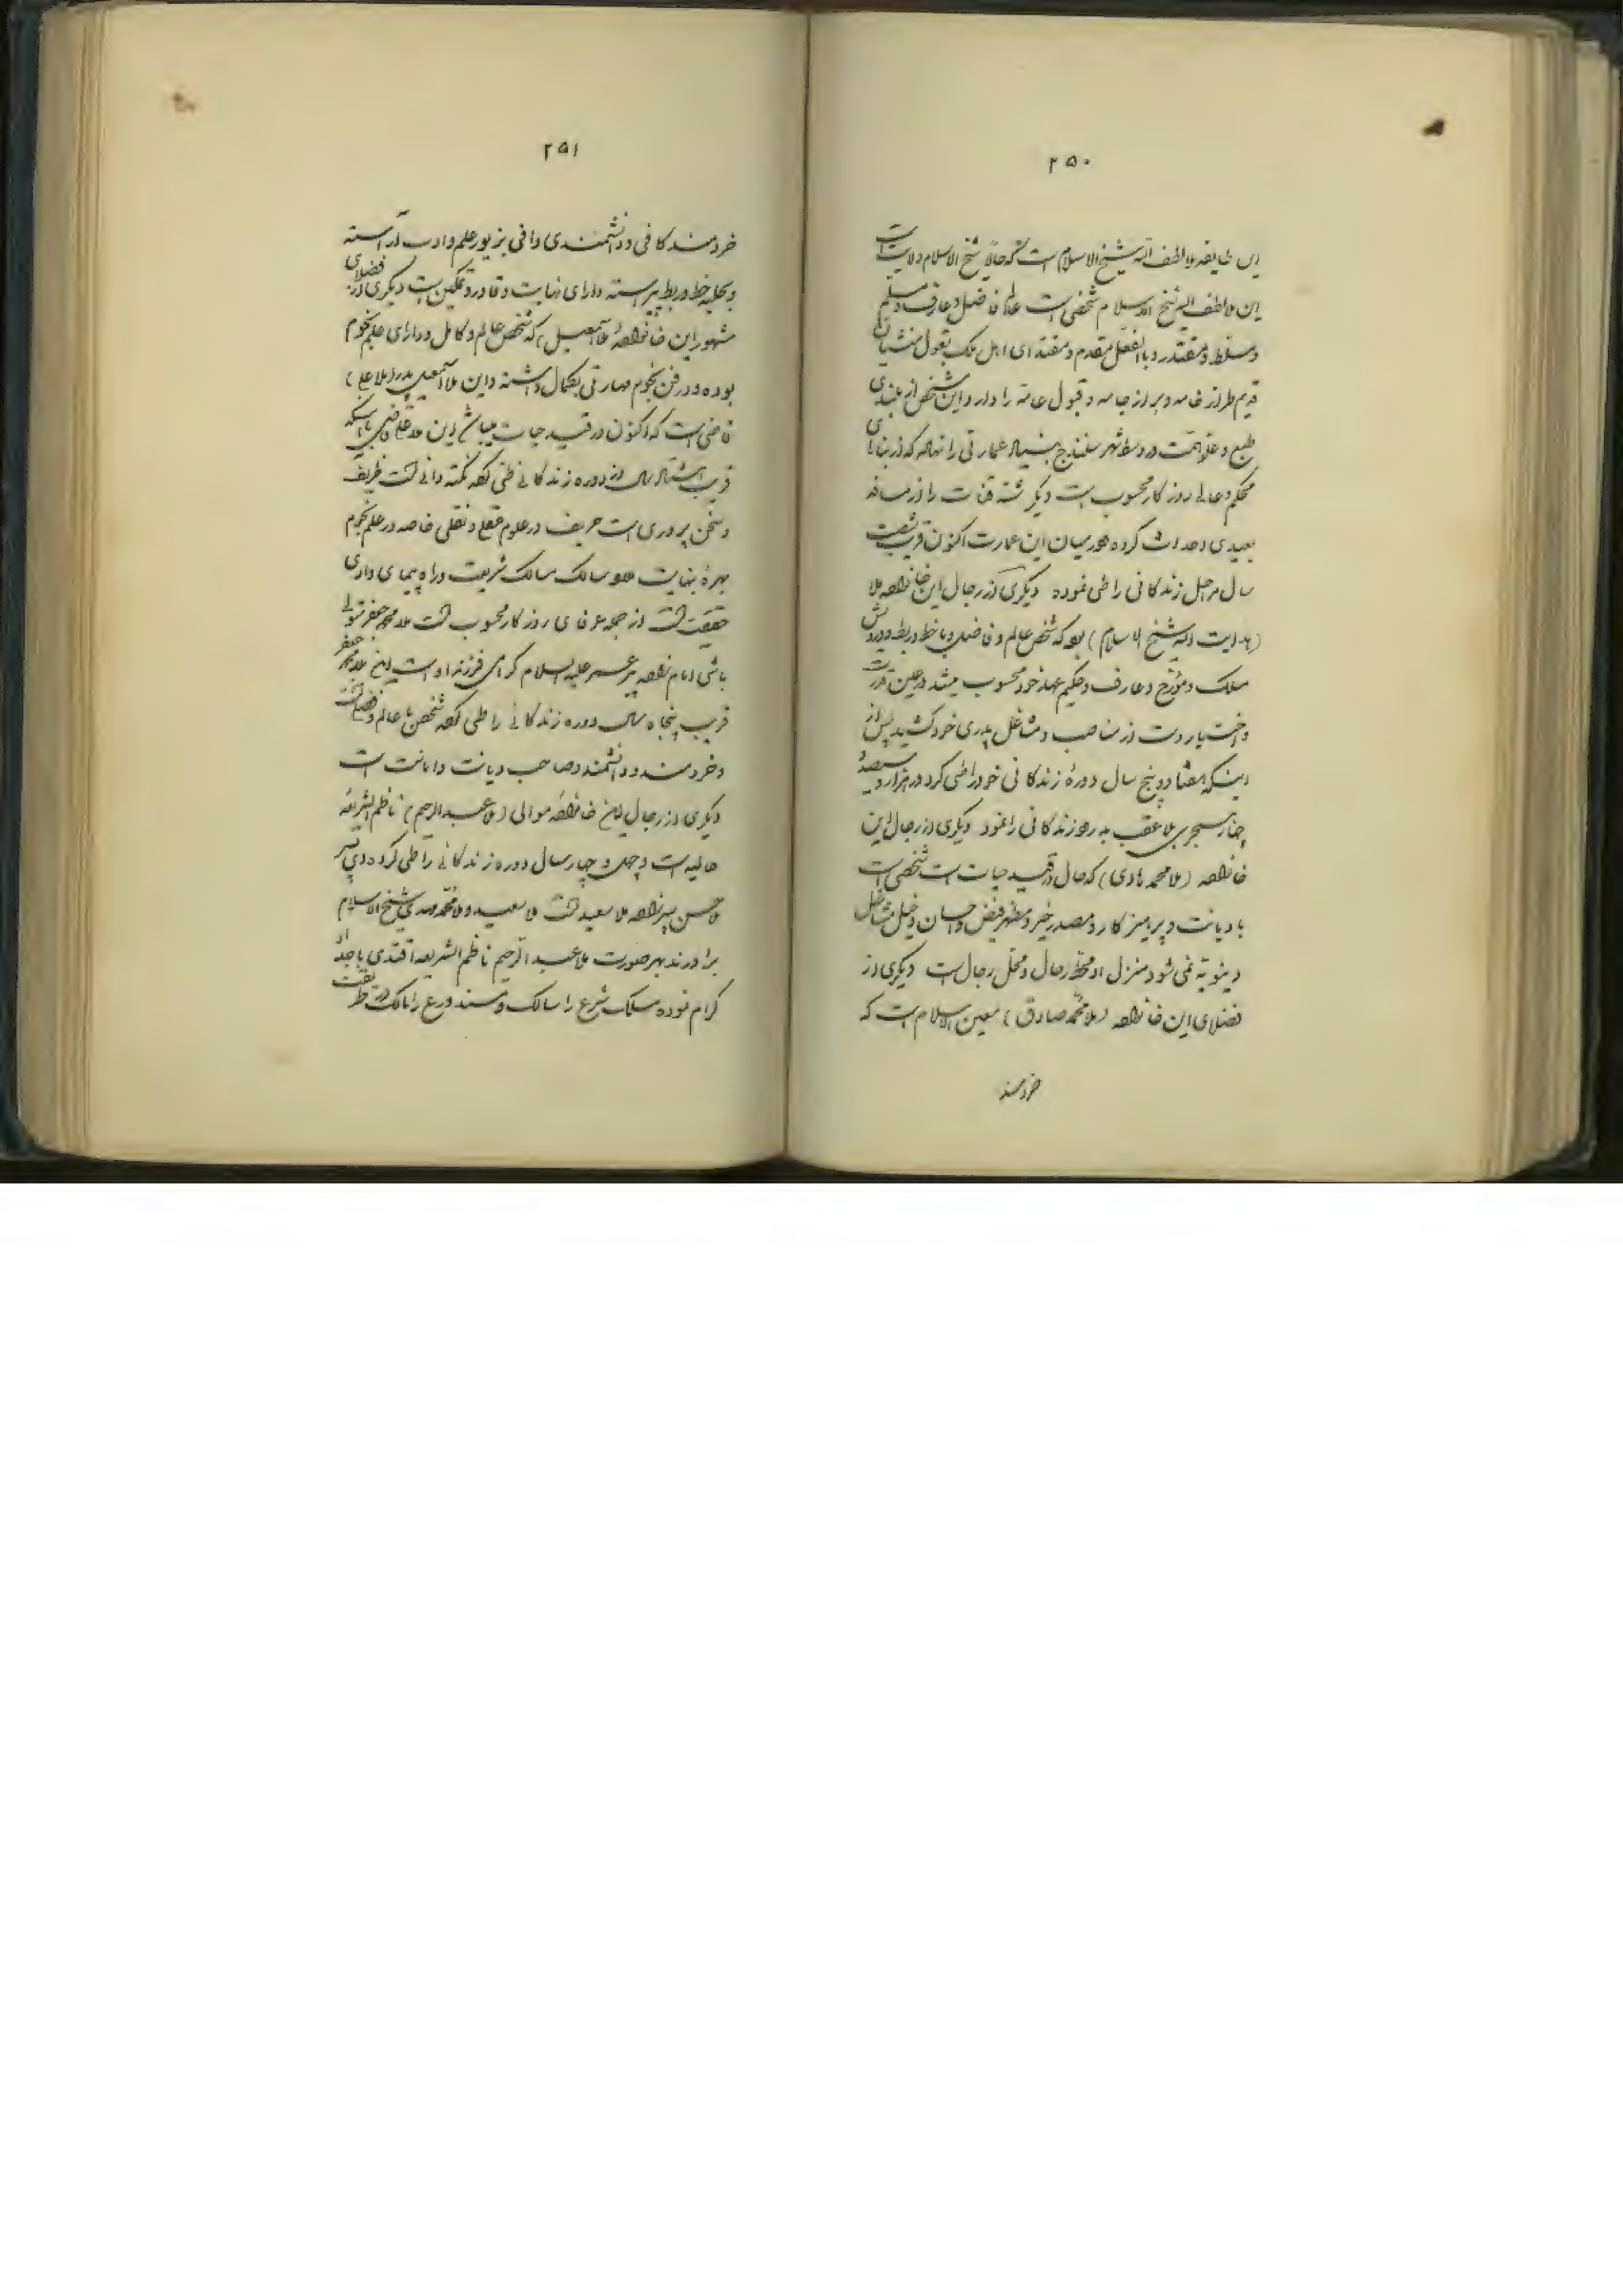 ۲۵۰
این طایفه ملا لطف الله شیخ الاسلام است که حالا شیخ الاسلام ولایت است
این ملا لطف الله شیخ الاسلام شخصی است عالم فاضل و عارف و مسلم
و مسلط و مقتدر و بالفعل مقدم و مقتدای اهل ملک بقول منشیان
قدیم طراز خامه و براز جامه و قبول عامه را دارد این شخص از بلندی
طبع و علو همت در وسط شهر سنندج بنیاد عمارتی را نهاده که از بناهای
محکم و عالی روزگار محسوب است دیگر رشته قنات را از مسافه
بعیدی احداث کرده در میان این عمارت اکنون قریب شصت
سال مراحل زندگانی را طی نموده دیگری از رجال این خانواده ملا
(هدایت الله شیخ الاسلام) بوده که شخص عالم و فاضل و با خط و ربط و درویش
مسلک و مورخ و عارف و حکیم عهد خود محسوب میشد در عین قدرت
و اختیار دست از مناصب و مشاغل پدری خود کشید پس از
اینکه هفتاد و پنج سال دورهٔ زندگانی خود را طی کرد در هزار و سیصد و
چهار هجری بلا عقب بدرود زندگانی را نمود دیگری از رجال این
خانواده (ملا محمد هادی) که حال در قید حیات است شخصی است
با دیانت و پرهیزکار و مصدر خیر و مظهر فیض و احسان و دخیل مشاغل
دینویه نمی شود منزل او محط رحال و محل رجال است دیگری از
فضلای این خانواده (ملا محمد صادق) معین الاسلام است که
خردمند
۲۵۱
خردمند کافی و دانشمندی وافی بزیور علم و ادب آراسته
و بحلیه خط و ربط پیراسته دارای نهایت وقار و تمکین است دیگری از فضلای
مشهور این خانواده ملا اسمعیل که شخص عالم و کامل و دارای علم نجوم
بوده و در فن نجوم مهارتی بکمال داشته و این ملا اسمعیل پدر (ملا علی)
قاضی است که اکنون در قید حیات میباشد این ملا علی قاضی با اینکه
قریب هشتاد سال از دوره زندگانی طی کرده نکته دانی است ظریف
و سخن پروری است حریف در علوم عقلی و نقلی خاصه در علم نجوم
بهرهٔ بنهایت دارد سالک مسالک شریعت و راه پیمای وادی
حقیقت است از جمله عرفای روزگار محسوب است ملا محمد جعفر متولی
باشی امام زاده پیر عمر علیه السلام گرامی فرزند او است این ملا محمد جعفر
قریب پنجاه سال دوره زندگانی را طی کرده شخص با عالم و فضل است
و خردمند و دانشمند و صاحب دیانت و امانت است
دیگری از رجال این خانواده موالی (ملا عبدالرحیم) ناظم الشریعه
حالیه است و چهل و چهار سال دوره زندگانی را طی کرده وی پسر
ملا حسن پسرزاده ملا سعید است ملا سعید و ملا محمد مهدی شیخ الاسلام
برادرند بهر صورت ملا عبد الرحیم ناظم الشریعه اقتدی باجداد
کرام نموده مسلک شرع را سالک و مسند ورع را مالک در طریقت